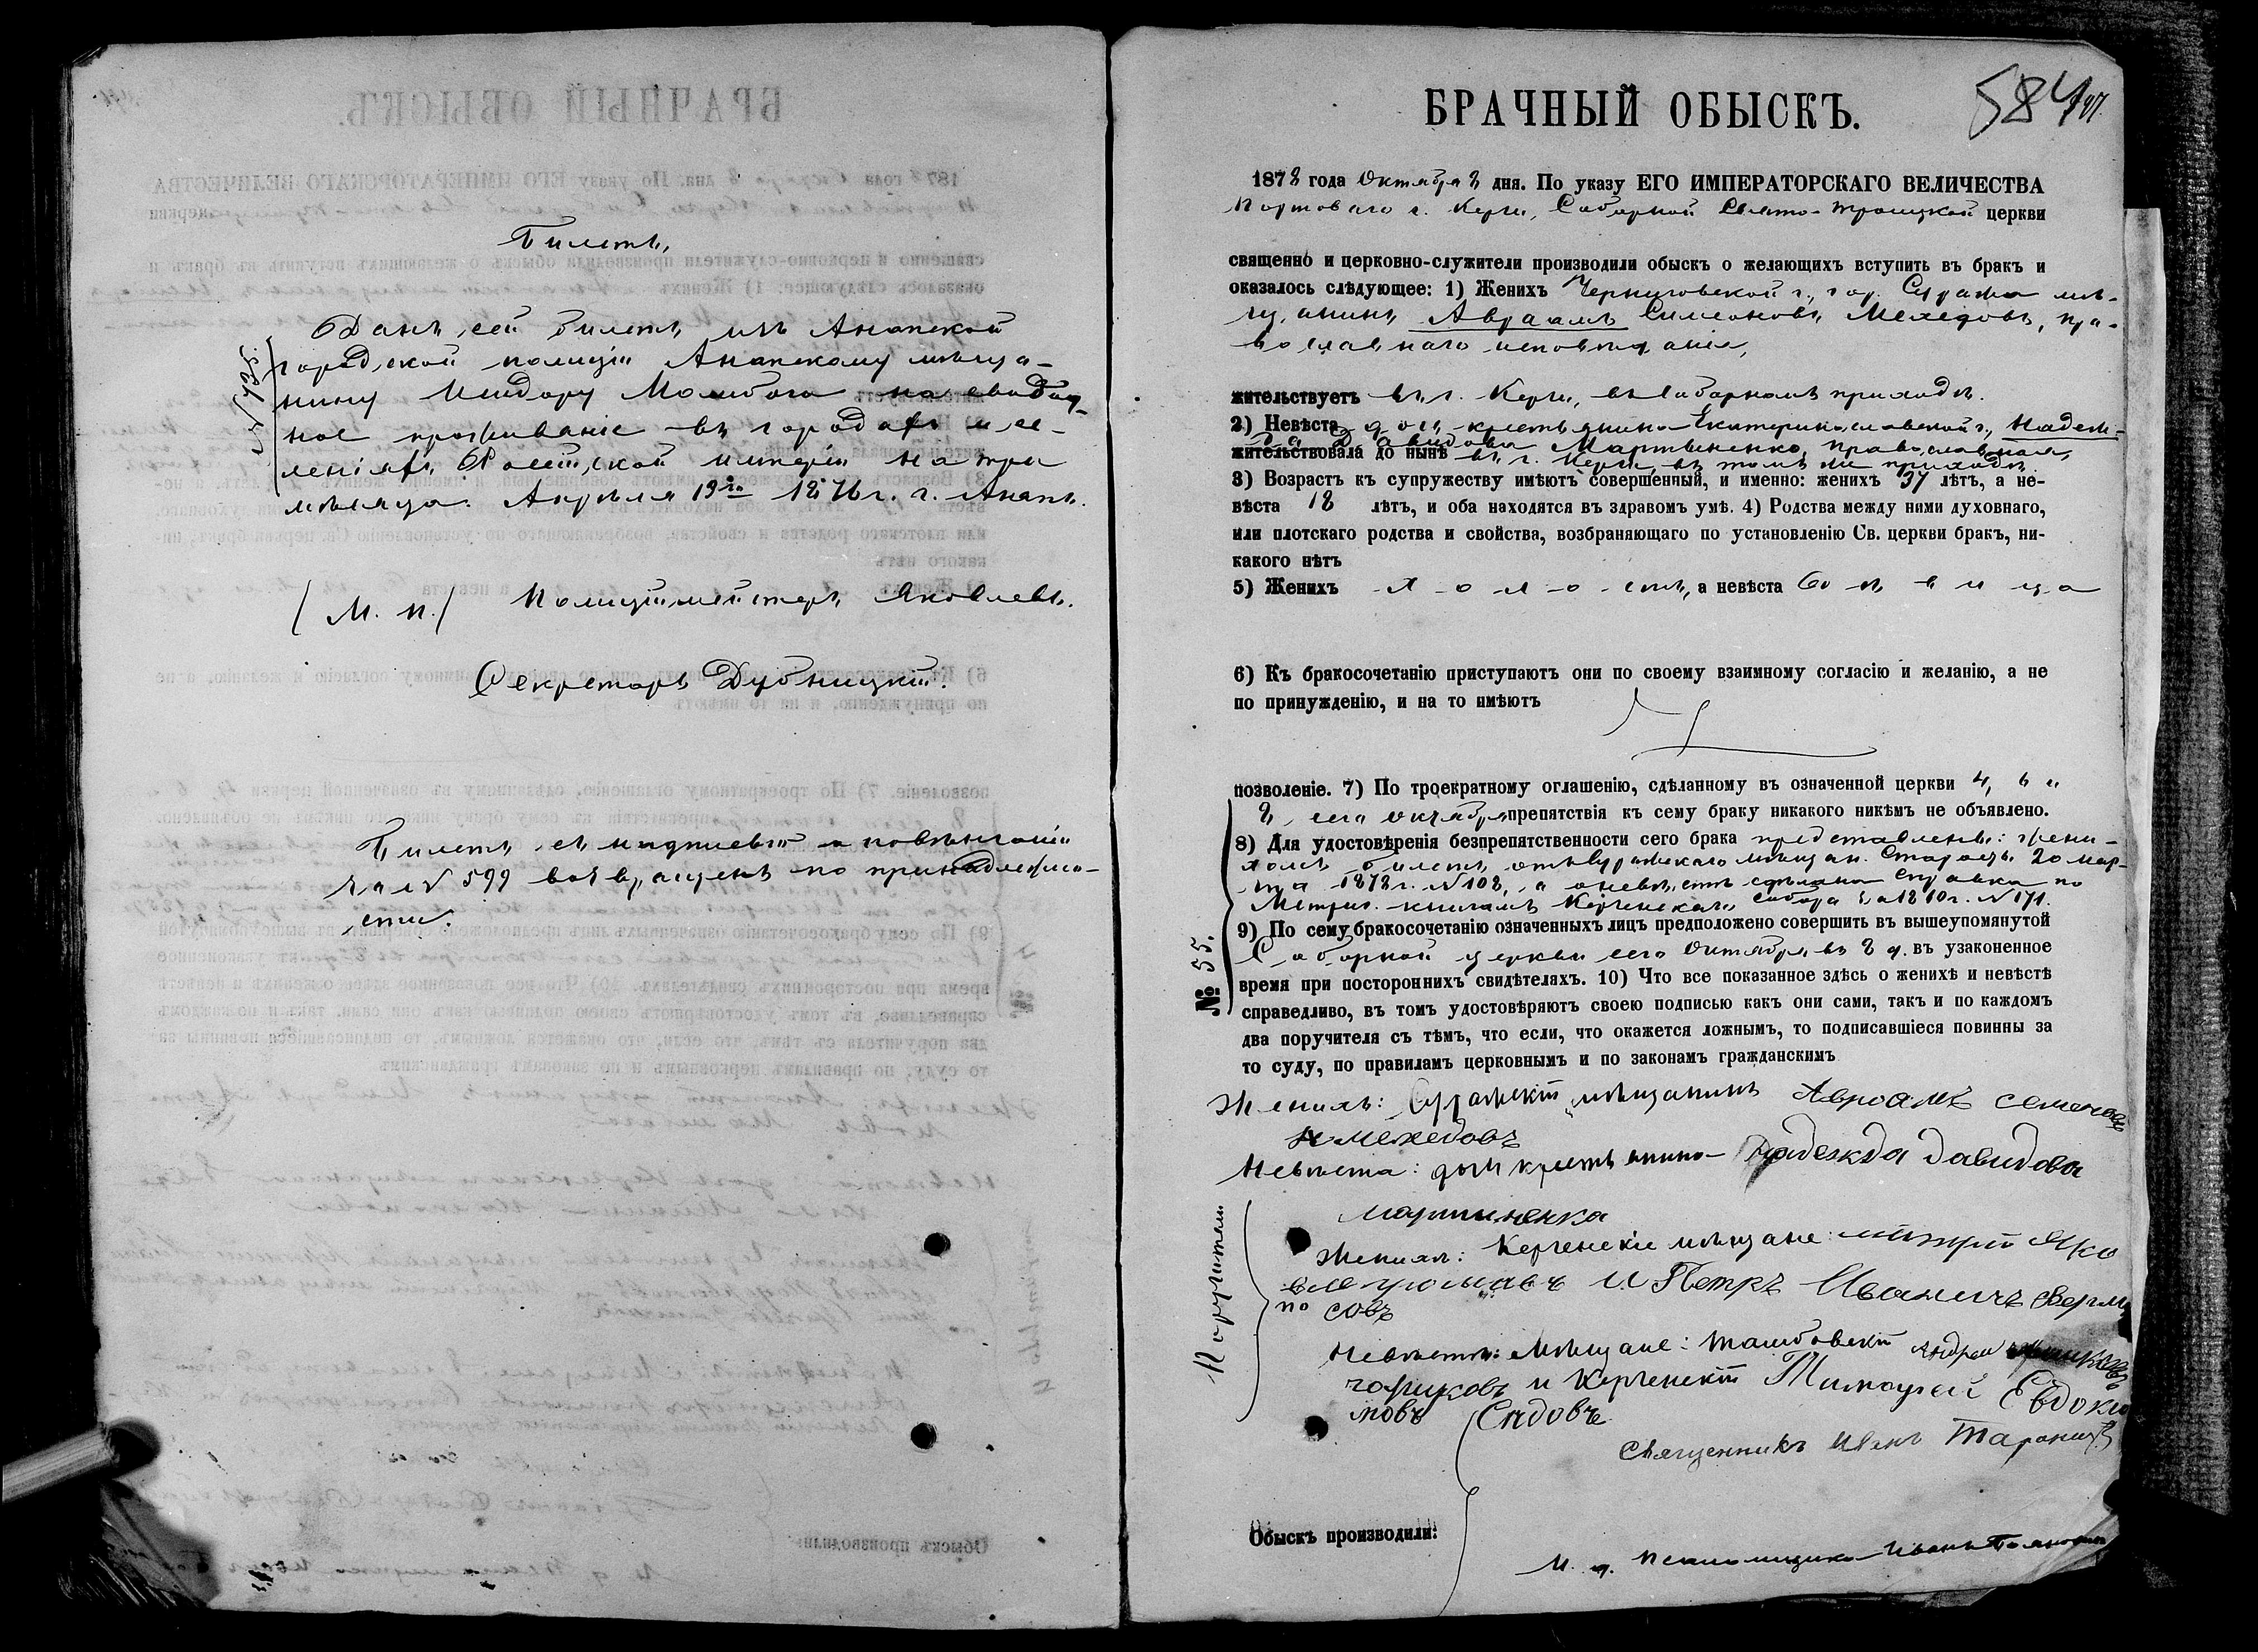 Билетъ,
Данъ сей билетъ изъ Анапской
городской полиціи Анапскому мѣща-
нину Исидору Момботъ на свобод-
ное проживаніе въ городахъ и се-
леніяхъ Россійской Имперіи на три
мѣсяца. Апрѣля 19го 1876 г. г. Анапа.
/ М. п. / Полиціймейстеръ Яковлевъ.
Секретарь Дубницкій.
Билетъ съ надписью о повѣнчаніи
за № 599 возвращенъ по принадлежно-
сти.
БРАЧНЫЙ ОБЫСКЪ.
584
1878 года Октября 8 дня. По указу ЕГО ИМПЕРАТОРСКАГО ВЕЛИЧЕСТВА
Портоваго г. Керчи, Соборной Свято-Троицкой церкви
священно и церковно-служители производили обыскъ о желающихъ вступить въ бракъ и
оказалось слѣдующее: 1) Женихъ Черниговской г., гор. Суража мѣ-
щанинъ Авраамъ Симеоновъ Мехедовъ, пра-
вославнаго исповѣданія,
жительствуетъ въ г. Керчи, въ Соборномъ приходѣ.
2) Невѣста дочь крестьянина Екатеринославской г., Надеж-
да Давидова Мартыненко, православная,
жительствовала до нынѣ въ г. Керчи, въ томъ же приходѣ.
3) Возрастъ къ супружеству имѣютъ совершенный, и именно: женихъ 37 лѣтъ, а не-
вѣста 18 лѣтъ, и оба находятся въ здравомъ умѣ. 4) Родства между ними духовнаго,
или плотскаго родства и свойства, возбраняющаго по установленію Св. церкви бракъ, ни-
какого нѣтъ
5) Женихъ холостъ, а невѣста дѣвица
6) Къ бракосочетанію приступаютъ они по своему взаимному согласію и желанію, а не
по принужденію, и на то имѣютъ
позволеніе. 7) По троекратному оглашенію, сдѣланному въ означенной церкви 4, 6 и
8, сего октября препятствія къ сему браку никакого никѣмъ не объявлено.
8) Для удостовѣренія безпрепятственности сего брака представлены: жени-
хомъ билетъ отъ Суражскаго мѣщан. Старосты 20 мар-
та 1878 г. № 108, а о невѣстѣ сдѣлана справка по
Метрич. книгамъ Керченскаго Собора за 1860 г. № 171.
9) По сему бракосочетанію означенныхъ лицъ предположено совершить въ вышеупомянутой
Соборной церкви сего Октября въ 8 д. въ узаконенное
время при постороннихъ свидѣтеляхъ. 10) Что все показанное здѣсь о женихѣ и невѣстѣ
справедливо, въ томъ удостовѣряютъ своею подписью какъ они сами, такъ и по каждомъ
два поручителя съ тѣмъ, что если, что окажется ложнымъ, то подписавшіеся повинны за
то суду, по правиламъ церковнымъ и по законамъ гражданскимъ
№ 55.
Женихъ: Суражскій мѣщанинъ Авроамъ Семеновъ
Мехедовъ
Невѣста: дочь крестьянина Надежда Давидова
Мартиненка
Поручители
по
Женихѣ: Керченскіе мѣщане: Яко
и Петръ Иваничъ
совъ
Невѣстѣ: Мѣщане: Тамбовскій Андрей
и Керченскій Тимофей Евдоки
мовъ Сѣдовъ
Священникъ Иванъ
Обыскъ производили:
И. д. Псаломщика Иванъ